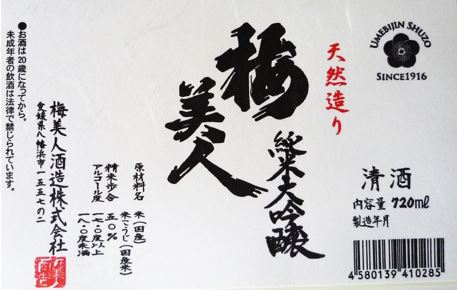 UMEBIJIN SHUZO
SINCE1916
天然造り
梅美人
純米大吟醸
清酒
内容量 720ml
製造年月
4580139410285
原材料名 米(国産)
米こうじ(国産米)
精米歩合 五〇%
アルコール度 一七.〇度以上
一八.〇度未満
梅美人酒造株式会社
愛媛県八幡浜市一五五七の二
●お酒は20歳になってから。
未成年者の飲酒は法律で禁じられています。